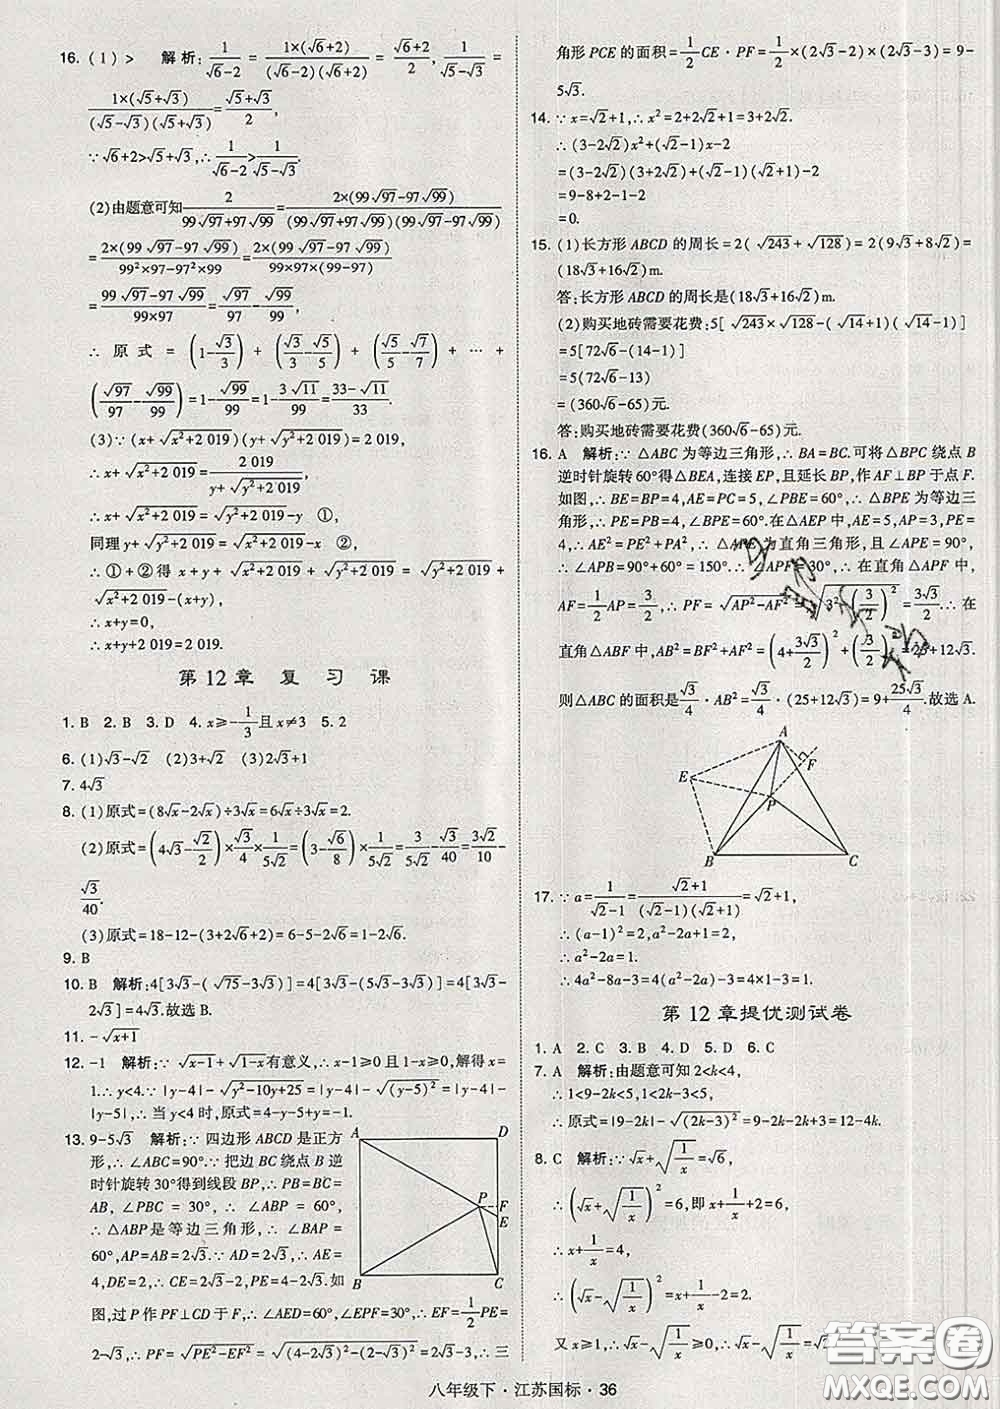 16. (1) > 解析: 1/(√6-2) = 1×(√6+2)/((√6-2)(√6+2)) = (√6+2)/2, 1/(√5-√3) =
1×(√5+√3)/((√5-√3)(√5+√3)) = (√5+√3)/2,
∵√6+2>√5+√3, ∴1/(√6-2) > 1/(√5-√3).
(2)由题意可知 2/(99√97+97√99) = 2×(99√97-97√99)/((99√97+97√99)(99√97-97√99))
= 2×(99√97-97√99)/(99²×97-97²×99) = 2×(99√97-97√99)/(99×97×(99-97))
= (99√97-97√99)/(99×97) = √97/97-√99/99,
∴ 原式 = (1-√3/3) + (√3/3-√5/5) + (√5/5-√7/7) + … +
(√97/97-√99/99) = 1-√99/99 = 1-3√11/99 = (33-√11)/33.
(3)∵(x+√(x²+2 019))(y+√(y²+2 019))=2 019,
∴x+√(x²+2 019) = 2 019/(y+√(y²+2 019)),
∴x+√(x²+2 019)=√(y²+2 019)-y ①,
同理y+√(y²+2 019)=√(x²+2 019)-x ②,
∴①+②得 x+y+√(x²+2 019)+√(y²+2 019)=√(x²+2 019)+
√(y²+2 019)-(x+y),
∴x+y=0,
∴x+y+2 019=2 019.
第 12 章 复 习 课
1. B 2. B 3. D 4. x≥-1/3且x≠3 5. 2
6. (1)√3-√2 (2)3+√2 (3)2
7. 4√3
8. (1)原式=(8√x-2√x)÷3√x=6√x÷3√x=2.
(2)原式=(4√3-√2/2)×√3/4×1/(5√2)=(3-√6/8)×1/(5√2)=3/(5√2)-√3/40=3√2/10-
√3/40.
(3)原式=18-12-(3+2√6+2)=6-5-2√6=1-2√6.
9. B
10. B 解析:4[3√3-(√75-3√3)]=4[3√3-(5√3-3√3)]=4[3√3-
2√3]=4√3.故选B.
11. -√(x+1)
12. -1 解析:∵√(x-1)+√(1-x)有意义,∴x-1≥0且1-x≥0,解得x=
1.∴y<4.∴|y-4|-√(y²-10y+25)=|y-4|-√(y-5)²=|y-4|-
|y-5|,∴当y<4时,原式=4-y-5+y=-1.
13. 9-5√3 解析:∵四边形ABCD是正方
形,∴∠ABC=90°.∵把边BC绕点B逆
时针旋转30°得到线段BP,∴PB=BC=
AB,∠PBC=30°,∴∠ABP=60°,
∴△ABP是等边三角形,∴∠BAP=
60°,AP=AB=2√3.∵AD=2√3,∴AE=
4,DE=2,∴CE=2√3-2,PE=4-2√3.如
图,过P作PF⊥CD于F,∴∠AED=60°,∠EPF=30°,∴EF=1/2PE=
2-√3,∴PF=√(PE²-EF²)=√((4-2√3)²-(2-√3)²)=2√3-3,∴三
A D P F E B C
角形PCE的面积=1/2CE·PF=1/2×(2√3-2)×(2√3-3)=9-
5√3.
14. ∵x=√2+1,∴x²=2+2√2+1=3+2√2.
∴(3-2√2)x²+(√2-1)x-2
=(3-2√2)(3+2√2)+(√2-1)(√2+1)-2
=9-8+2-1-2
=0.
15. (1)长方形ABCD的周长=2(√243+√128)=2(9√3+8√2)=
(18√3+16√2)m.
答:长方形ABCD的周长是(18√3+16√2)m.
(2)购买地砖需要花费:5[√243×√128-(√14+1)(√14-1)]
=5[72√6-(14-1)]
=5(72√6-13)
=(360√6-65)元.
答:购买地砖需要花费(360√6-65)元.
16. A 解析:∵△ABC为等边三角形,∴BA=BC.可将△BPC绕点B
逆时针旋转60°得△BEA,连接EP,且延长BP,作AF⊥BP于点F.
如图,∴BE=BP=4,AE=PC=5,∠PBE=60°,∴△BPE为等边三
角形,∴PE=PB=4,∠BPE=60°.在△AEP中,AE=5,AP=3,PE=
4,∴AE²=PE²+PA²,∴△APE为直角三角形,且∠APE=90°,
∴∠APB=90°+60°=150°.∴∠APF=30°,∴在直角△APF中,
AF=1/2AP=3/2,∴PF=√(AP²-AF²)=√(3²-(3/2)²)=3√3/2.∴在
直角△ABF中,AB²=BF²+AF²=(4+3√3/2)²+(3/2)²=25+12√3.
则△ABC的面积是√3/4·AB²=√3/4·(25+12√3)=9+25√3/4.故选A.
A E F P B C
17. ∵a=1/(√2-1)=(√2+1)/((√2-1)(√2+1))=√2+1,
∴(a-1)²=2,∴a²-2a+1=2,
∴a²-2a=1.
∴4a²-8a-3=4(a²-2a)-3=4×1-3=1.
第 12 章提优测试卷
1. A 2. C 3. B 4. D 5. D 6. C
7. A 解析:由题意可知2<k<4,
∴1<9-2k<5,1<2k-3<5,
∴原式=|9-2k|-√(2k-3)²=9-2k-2k+3=12-4k.
8. C 解析:∵√x+√(1/x)=√6,
∴(√x+√(1/x))²=6,即x+1/x+2=6,
∴x+1/x=4,
∴(√x-√(1/x))²=x+1/x-2=2.
又x≥1,∴√x-√(1/x)≥0,∴√x-√(1/x)=√2.
八年级下·江苏国标·36
答案圈
MXQE.COM